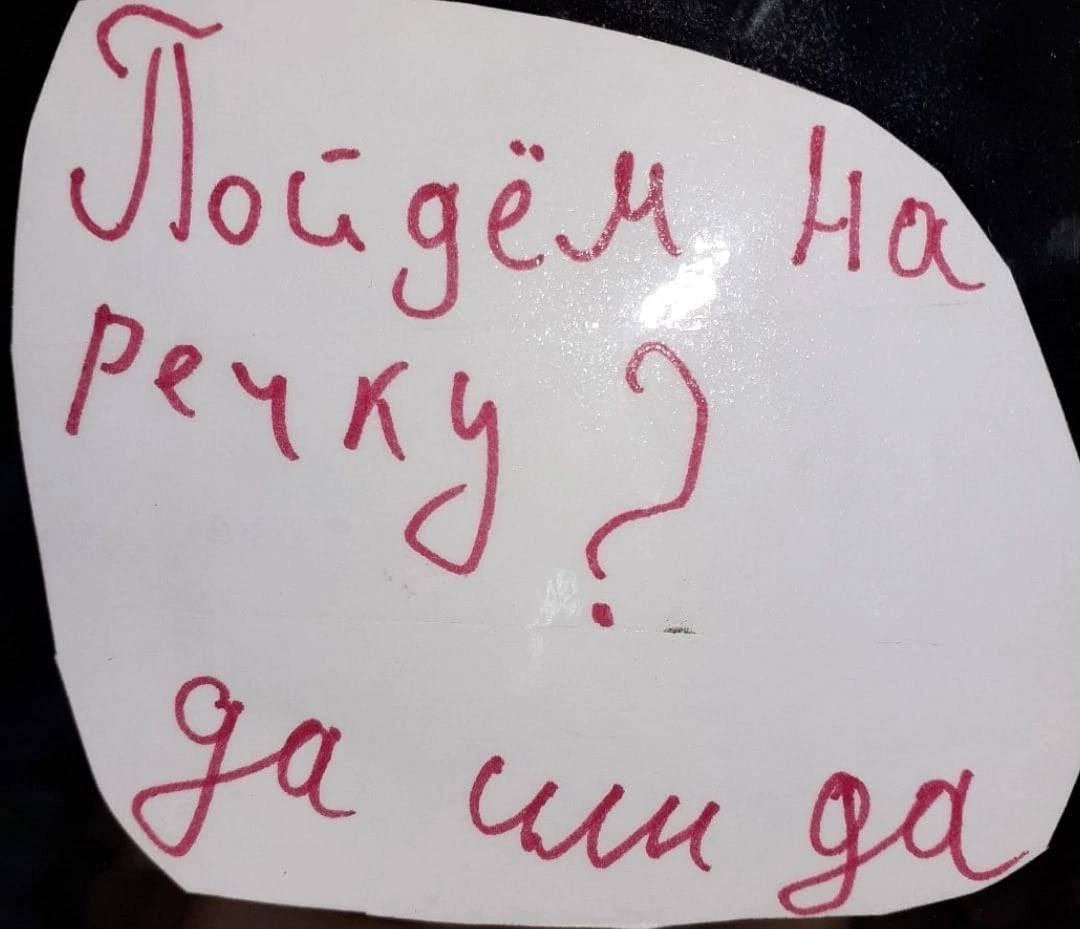 Пойдём на
речку?
да или да